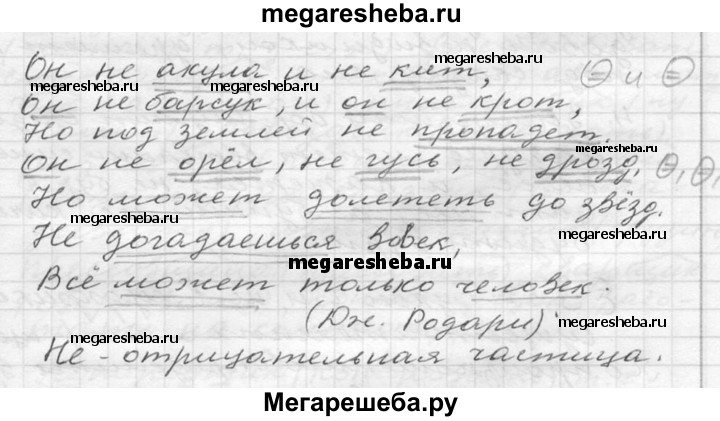 megaresheba.ru
Он не акула и не кит,
megaresheba.ru
Он не барсук, и он не крот,
Но под землей не пропадет.
megaresheba.ru
Он не орёл, не гусь, не дрозд,
Но может долететь до звёзд.
megaresheba.ru
megaresheba.ru
Не догадаешься вовек,
megaresheba.ru
Всё может только человек.
(Дж. Родари)
megaresheba.ru
megaresheba.ru
Не - отрицательная частица.
Мегарешеба.ру